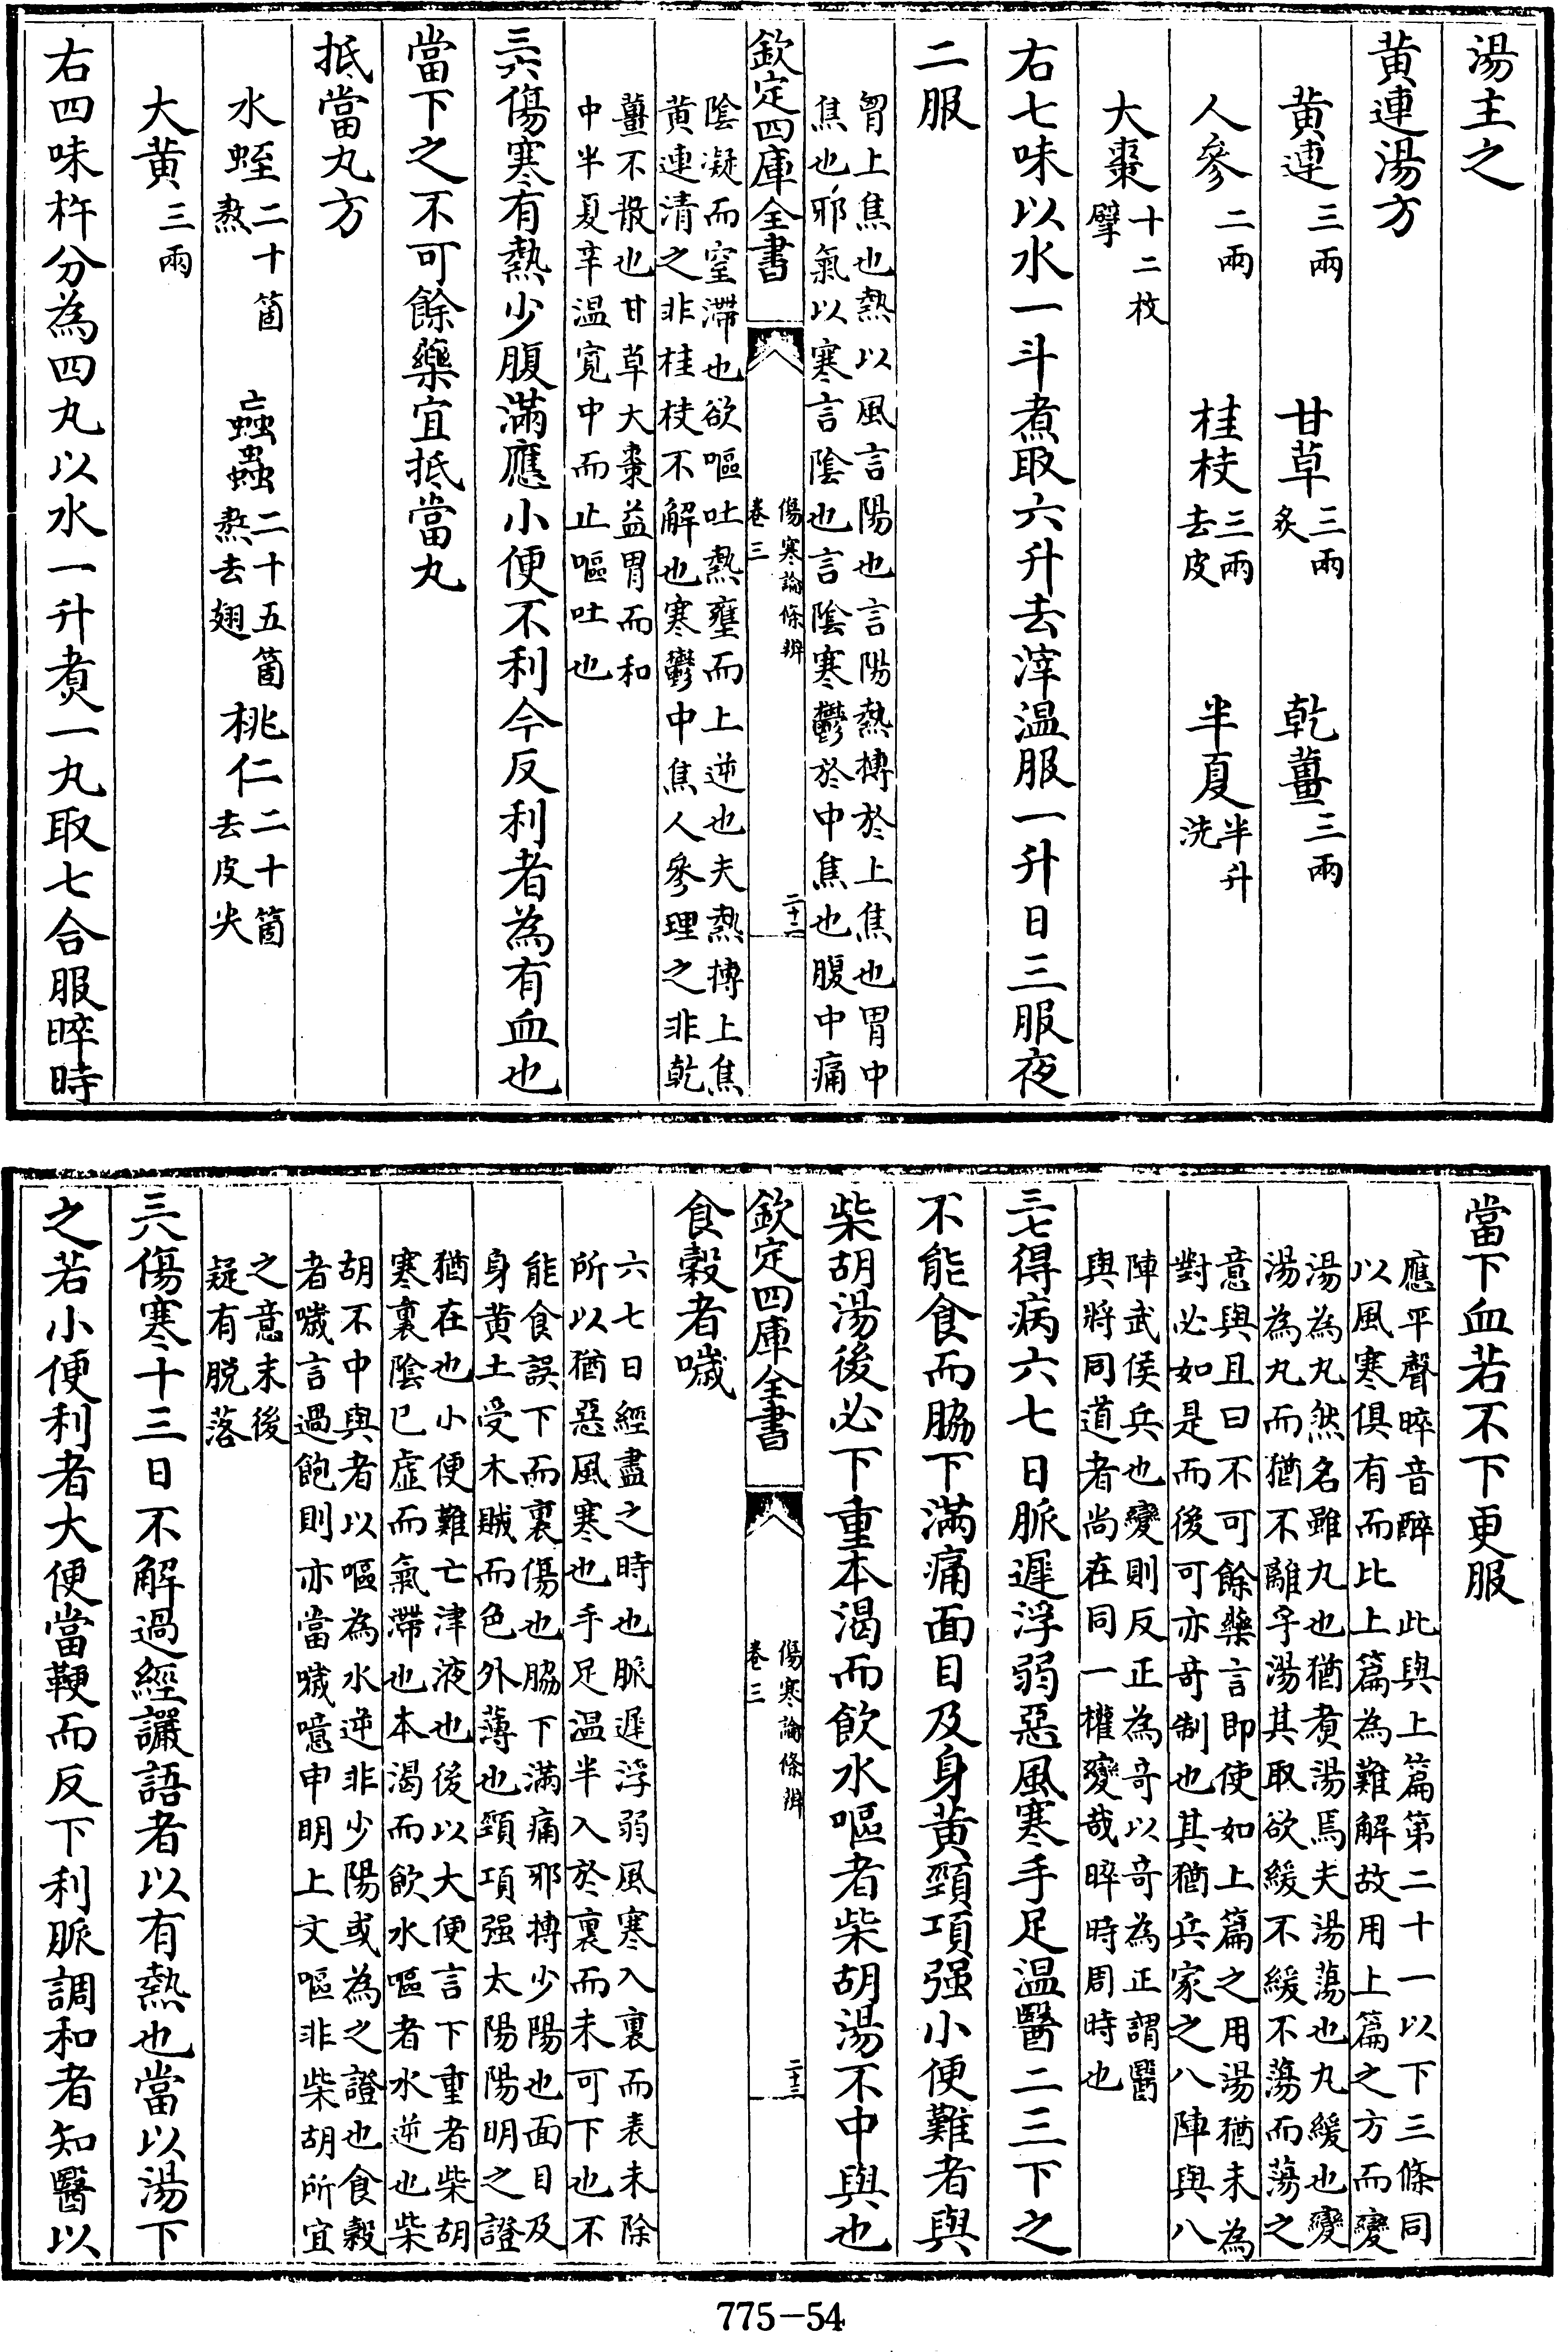 湯主之
黃連湯方
黃連三兩 甘草三兩炙 乾薑三兩
人參二兩 桂枝三兩去皮 半夏半升洗
大棗十二枚擘
右七味以水一斗煮取六升去滓温服一升日三服夜
二服
胷上焦也熱以風言陽也言陽熱搏於上焦也胃中
焦也邪氣以寒言隂也言隂寒鬱於中焦也腹中痛
欽定四庫全書
傷寒論條辨
卷三
二十二
隂凝而窒滯也欲嘔吐熱壅而上逆也夫熱搏上焦
黃連清之非桂枝不解也寒鬱中焦人參理之非乾
薑不散也甘草大棗益胃而和
中半夏辛温寛中而止嘔吐也
三六傷寒有熱少腹滿應小便不利今反利者為有血也
當下之不可餘藥宜抵當丸
抵當丸方
水蛭二十箇熬 蝱蟲二十五箇熬去翅 桃仁二十箇去皮尖
大黃三兩
右四味杵分為四丸以水一升煮一丸取七合服晬時
當下血若不下更服
應平聲晬音醉 此與上篇第二十一以下三條同
以風寒俱有而比上篇為難解故用上篇之方而變
湯為丸然名雖丸也猶煮湯焉夫湯蕩也丸緩也變
湯為丸而猶不離乎湯其取欲緩不緩不蕩而蕩之
意與且曰不可餘藥言即使如上篇之用湯猶未為
對必如是而後可亦竒制也其猶兵家之八陣與八
陣武侯兵也變則反正為竒以竒為正謂醫
與將同道者尚在同一權變哉晬時周時也
三七得病六七日脈遲浮弱惡風寒手足温醫二三下之
不能食而脇下滿痛面目及身黃頸項强小便難者與
柴胡湯後必下重本渴而飲水嘔者柴胡湯不中與也
欽定四庫全書
傷寒論條辨
卷三
二十三
食穀者噦
六七日經盡之時也脈遲浮弱風寒入裏而表未除
所以猶惡風寒也手足温半入於裏而未可下也不
能食誤下而裏傷也脇下滿痛邪搏少陽也面目及
身黃土受木賊而色外薄也頸項强太陽陽明之證
猶在也小便難亡津液也後以大便言下重者柴胡
寒裏隂已虛而氣滯也本渴而飲水嘔者水逆也柴
胡不中與者以嘔為水逆非少陽或為之證也食穀
者噦言過飽則亦當噦噫申明上文嘔非柴胡所宜
之意末後
疑有脱落
三八傷寒十三日不解過經讝語者以有熱也當以湯下
之若小便利者大便當鞕而反下利脈調和者知醫以
775-54